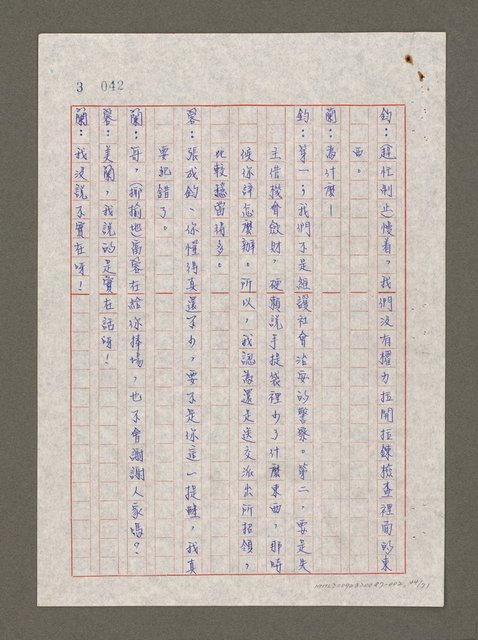 3 042
鈞：趕忙制止慢着，我們沒有權力拉開拉鍊檢查裡面的東
西。
蘭：為什麼！
鈞：第一，我們不是維護社會治安的警察。第二，要是失
主借機會斂財，硬賴說手提袋裡少了什麼東西，那時
候你詳怎麼辦。所以，我認為還是送交派出所招領，
比較穩當得多。
蓉：張成鈞，你懂得真還不少，要不是你這一提醒，我真
要犯錯了。
蘭：哥，（揶揄地）富蓉在給你捧場，也不會謝謝人家嗎？
蓉：美蘭，我說的是實在話呀！
蘭：我沒說不實在呀！